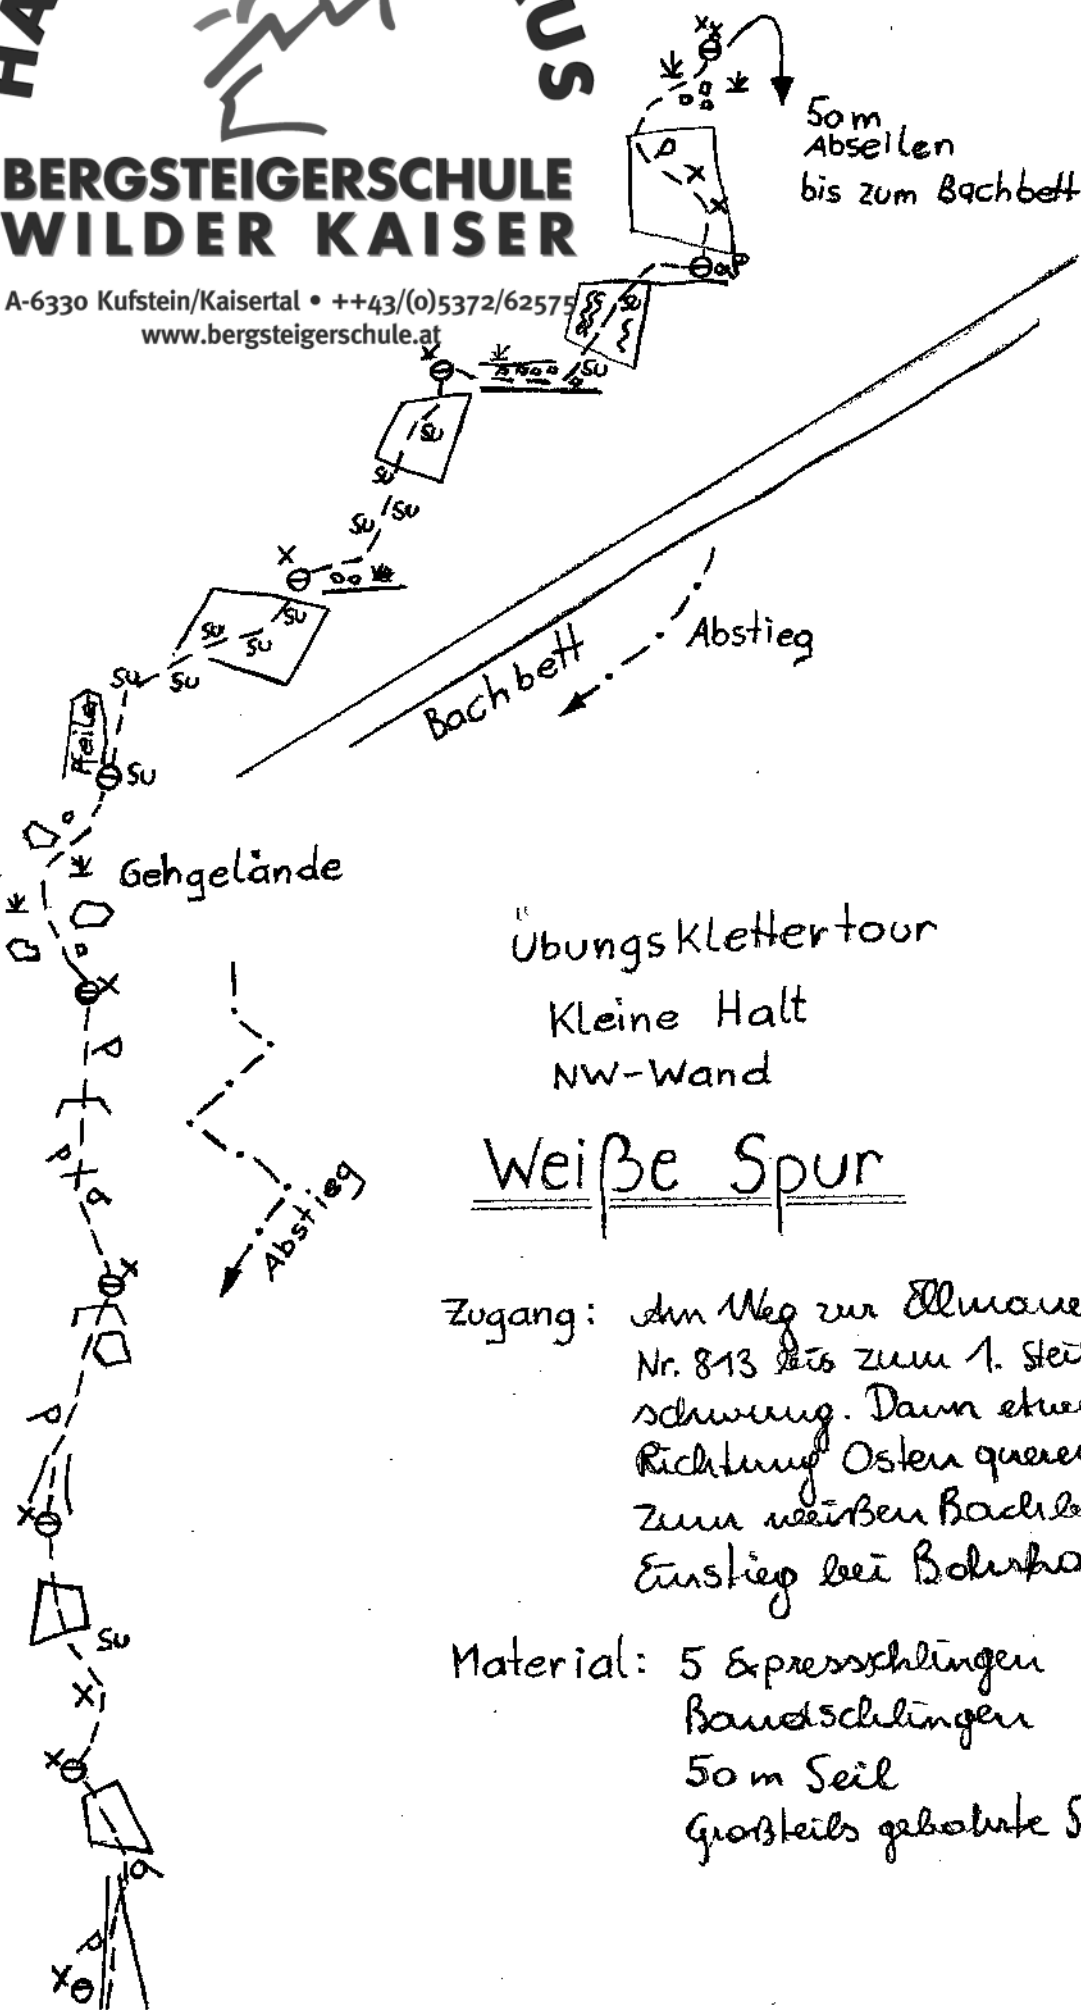 HA
US
BERGSTEIGERSCHULE
WILDER KAISER
A-6330 Kufstein/Kaisertal • ++43/(0)5372/62575
www.bergsteigerschule.at
50m
Abseilen
bis zum Bachbett
SU
SU
SU
SU
SU SU
SU
SU
SU
SU SU
Abstieg
Bachbett
Pfeiler
SU
Gehgelände
Übungsklettertour
Kleine Halt
NW-Wand
Weiße Spur
Abstieg
Zugang: Am Weg zur Ellmaue
Nr. 813 bis zum 1. Stei
schwung. Dann etwa
Richtung Osten quere
zum weißen Bachbe
Einstieg bei Bohrha
SU
Material: 5 Expressschlingen
Bandschlingen
50 m Seil
Großteils gebohrte S